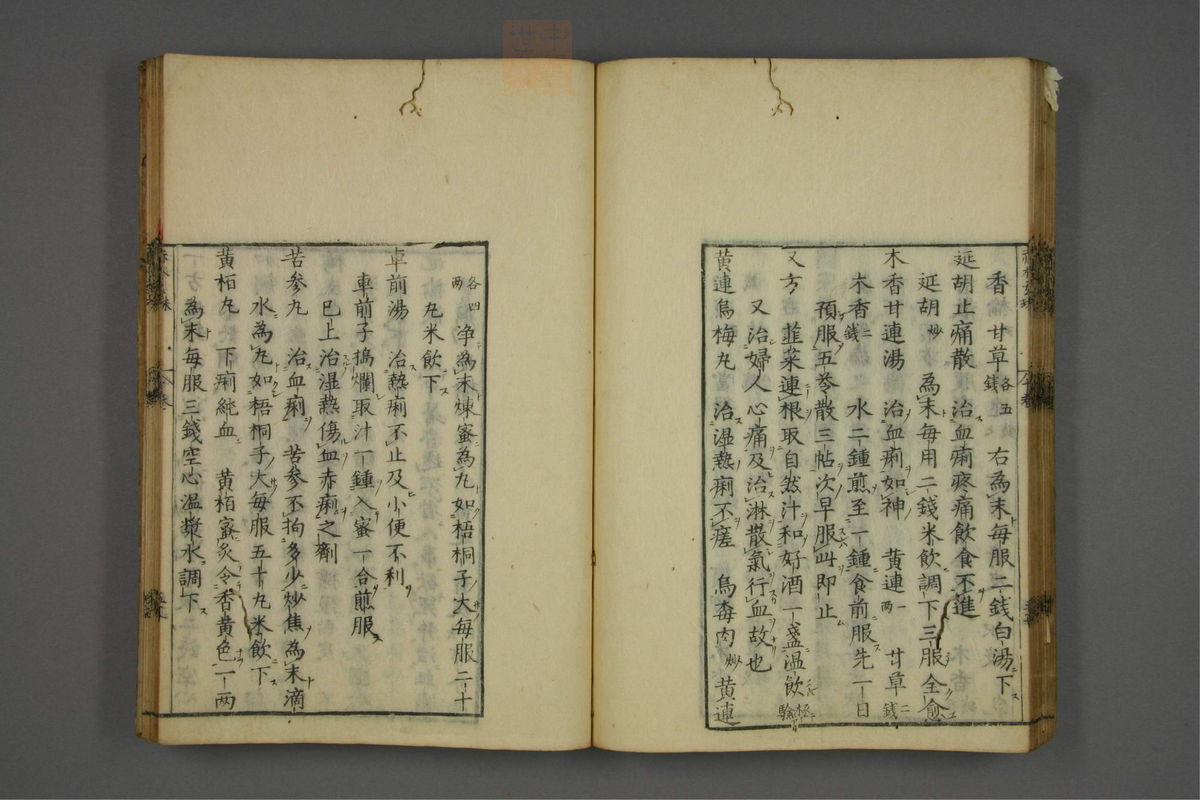 香 甘草各五錢 右為末毎服二錢白湯下
延胡止痛散 治血痢疼痛飲食不進
延胡炒 為末毎用二錢米飲調下三服全愈
木香甘連湯 治血痢如神 黄連一兩 甘草二錢
木香二錢 水二鍾煎至一鍾食前服先一日
預服五苓散三帖次早服此即止
又方 韮菜連根取自然汁和好酒一盞温飲極驗
又治婦人心痛及治淋散氣行血故也
黄連烏梅丸 治湿熱痢不瘥 烏梅肉炒 黄連
各四两 净為末煉蜜為丸如梧桐子大毎服二十
丸米飲下
車前湯 治熱痢不止及小便不利
車前子搗爛取汁一鍾入蜜一合煎服
已上治湿熱傷血赤痢之劑
苦参丸 治血痢 苦参不拘多少炒焦為末滴
水為丸如梧桐子大毎服五十丸米飲下
黄栢丸 下痢純血 黄栢蜜炙令香黄色一两
為末毎服三錢空心温漿水調下